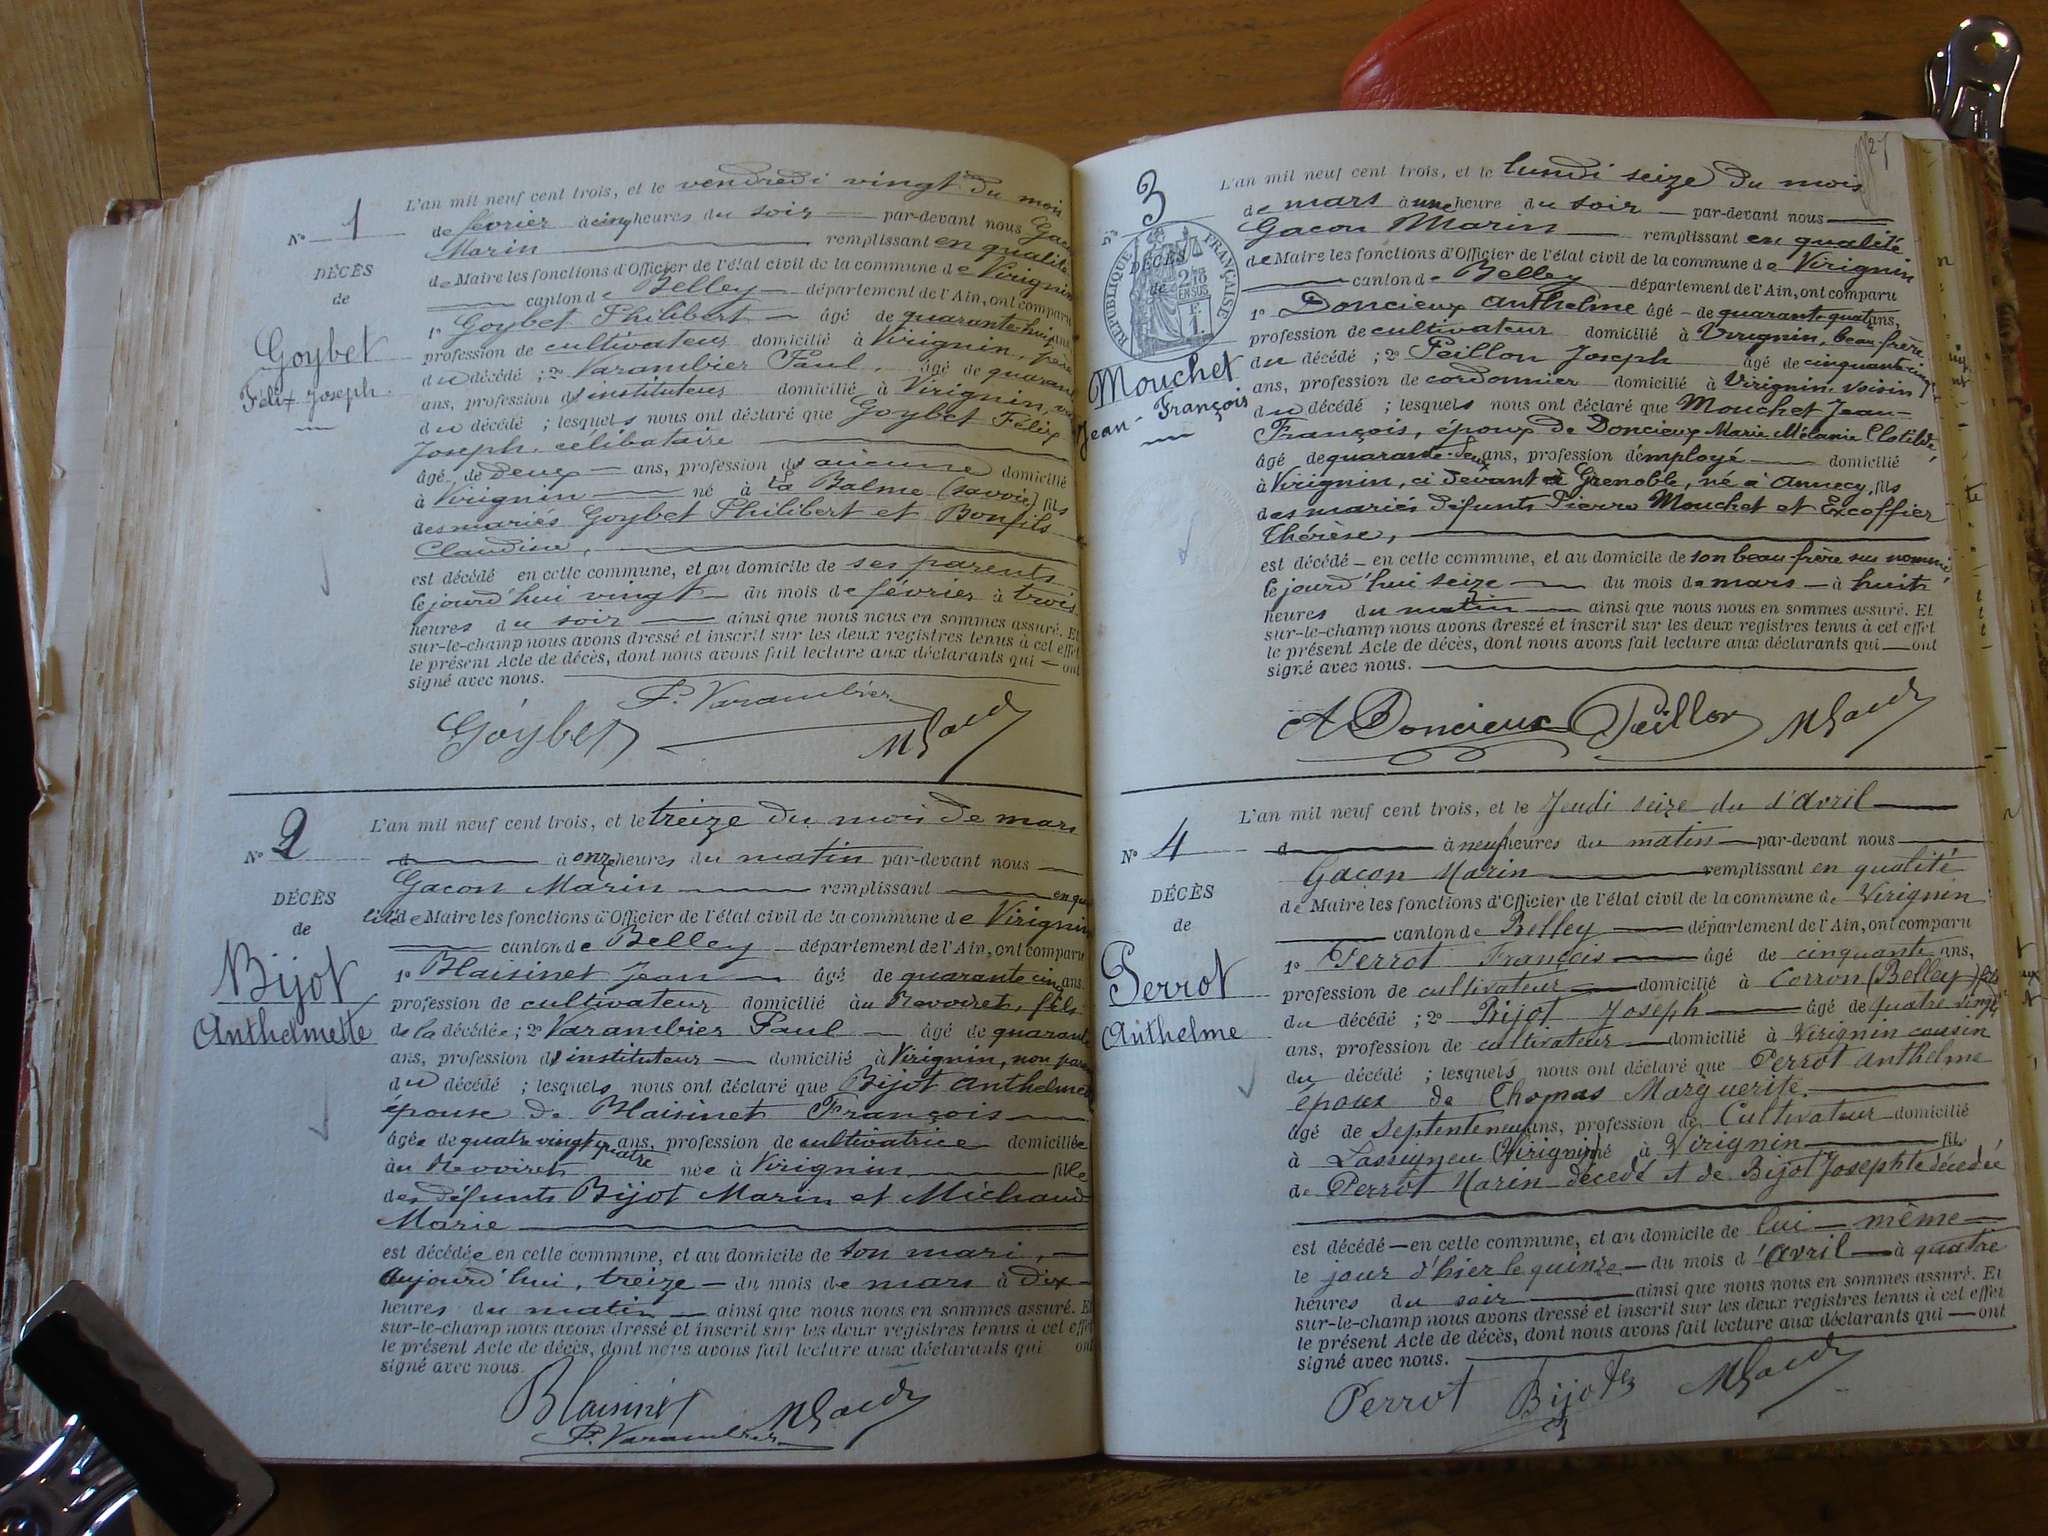 L'an mil neuf cent trois, et le vendredi vingt du mois
de février à cinq heures du soir par-devant nous Gacon
Marin remplissant en qualité
de Maire les fonctions d'Officier de l'état civil de la commune de Virignin
canton de Belley département de l'Ain, ont comparu
1º Goybet Philibert âgé de quarante-huit ans
profession de cultivateur domicilié à Virignin, père
du décédé ; 2º Varambier Paul, âgé de quarante
ans, profession d'instituteur domicilié à Virignin,
du décédé ; lesquels nous ont déclaré que Goybet Félix
Joseph, célibataire
âgé de deux ans, profession d'aucune domicilié
à Virignin né à la Balme (Savoie) fils
des mariés Goybet Philibert et Bonfils
Claudine,
est décédé en cette commune, et au domicile de ses parents
le jourd'hui vingt du mois de février à trois
heures du soir ainsi que nous nous en sommes assuré. Et
sur-le-champ nous avons dressé et inscrit sur les deux registres tenus à cet effet
le présent Acte de décès, dont nous avons fait lecture aux déclarants qui ont
signé avec nous.
P. Varambier
Goybet
Nº 1
DÉCÈS
de
Goybet
Félix Joseph
L'an mil neuf cent trois, et le treize du mois de mars
à onze heures du matin par-devant nous
Gacon Marin remplissant en qua
lité de Maire les fonctions d'Officier de l'état civil de la commune de Virignin
canton de Belley département de l'Ain, ont comparu
1º Blaisinet Jean âgé de quarante cinq ans
profession de cultivateur domicilié au Revoiret, fils
de la décédée ; 2º Varambier Paul âgé de quarante
ans, profession d'instituteur domicilié à Virignin, non parent
du décédé ; lesquels nous ont déclaré que Bijot Anthelmette
épouse de Blaisinet François
âgée de quatre vingt quatre ans, profession de cultivatrice domiciliée
au Revoiret née à Virignin fille
des défunts Bijot Marin et Michaud
Marie
est décédée en cette commune, et au domicile de son mari,
aujourd'hui, treize du mois de mars à dix
heures du matin ainsi que nous nous en sommes assuré. Et
sur-le-champ nous avons dressé et inscrit sur les deux registres tenus à cet effet
le présent Acte de décès, dont nous avons fait lecture aux déclarants qui ont
signé avec nous.
Blaisinet
P. Varambier
Nº 2
DÉCÈS
de
Bijot
Anthelmette
L'an mil neuf cent trois, et le lundi seize du mois
de mars à une heure du soir par-devant nous
Gacon Marin remplissant en qualité
de Maire les fonctions d'Officier de l'état civil de la commune de Virignin
canton de Belley département de l'Ain, ont comparu
1º Doncieux Anthelme âgé de quarante-quatre ans,
profession de cultivateur domicilié à Virignin, beau-frère
du décédé ; 2º Peillon Joseph âgé de cinquante-cinq
ans, profession de cordonnier domicilié à Virignin voisin
du décédé ; lesquels nous ont déclaré que Mouchet Jean-
François, époux de Doncieux Marie Mélanie Clotilde,
âgé de quarante-deux ans, profession d'employé domicilié
à Virignin, ci devant à Grenoble, né à Annecy, fils
des mariés défunts Pierre Mouchet et Excoffier
Thérèse,
est décédé en cette commune, et au domicile de son beau-frère sus nommé,
le jourd'hui seize du mois de mars à huit
heures du matin ainsi que nous nous en sommes assuré. Et
sur-le-champ nous avons dressé et inscrit sur les deux registres tenus à cet effet
le présent Acte de décès, dont nous avons fait lecture aux déclarants qui ont
signé avec nous.
A Doncieux Peillon
Nº 3
RÉPUBLIQUE FRANÇAISE
DÉCÈS
de
Mouchet
Jean-François
L'an mil neuf cent trois, et le Jeudi seize du d'Avril
d à neuf heures du matin par-devant nous
Gacon Marin remplissant en qualité
de Maire les fonctions d'Officier de l'état civil de la commune de Virignin
canton de Belley département de l'Ain, ont comparu
1º Perrot François âgé de cinquante ans,
profession de cultivateur domicilié à Corron (Belley) fils
du décédé ; 2º Bijot Joseph âgé de quatre vingt
ans, profession de cultivateur domicilié à Virignin cousin
du décédé ; lesquels nous ont déclaré que Perrot Anthelme
époux de Thomas Marguerite
âgé de septente neuf ans, profession de Cultivateur domicilié
à Lassigneu (Virignin) né à Virignin fils
de Perrot Marin décédé et de Bijot Josephte décédée
est décédé en cette commune, et au domicile de lui-même
le jour d'hier le quinze du mois d'Avril à quatre
heures du soir ainsi que nous nous en sommes assuré. Et
sur-le-champ nous avons dressé et inscrit sur les deux registres tenus à cet effet
le présent Acte de décès, dont nous avons fait lecture aux déclarants qui ont
signé avec nous.
Perrot Bijot
Nº 4
DÉCÈS
de
Perrot
Anthelme